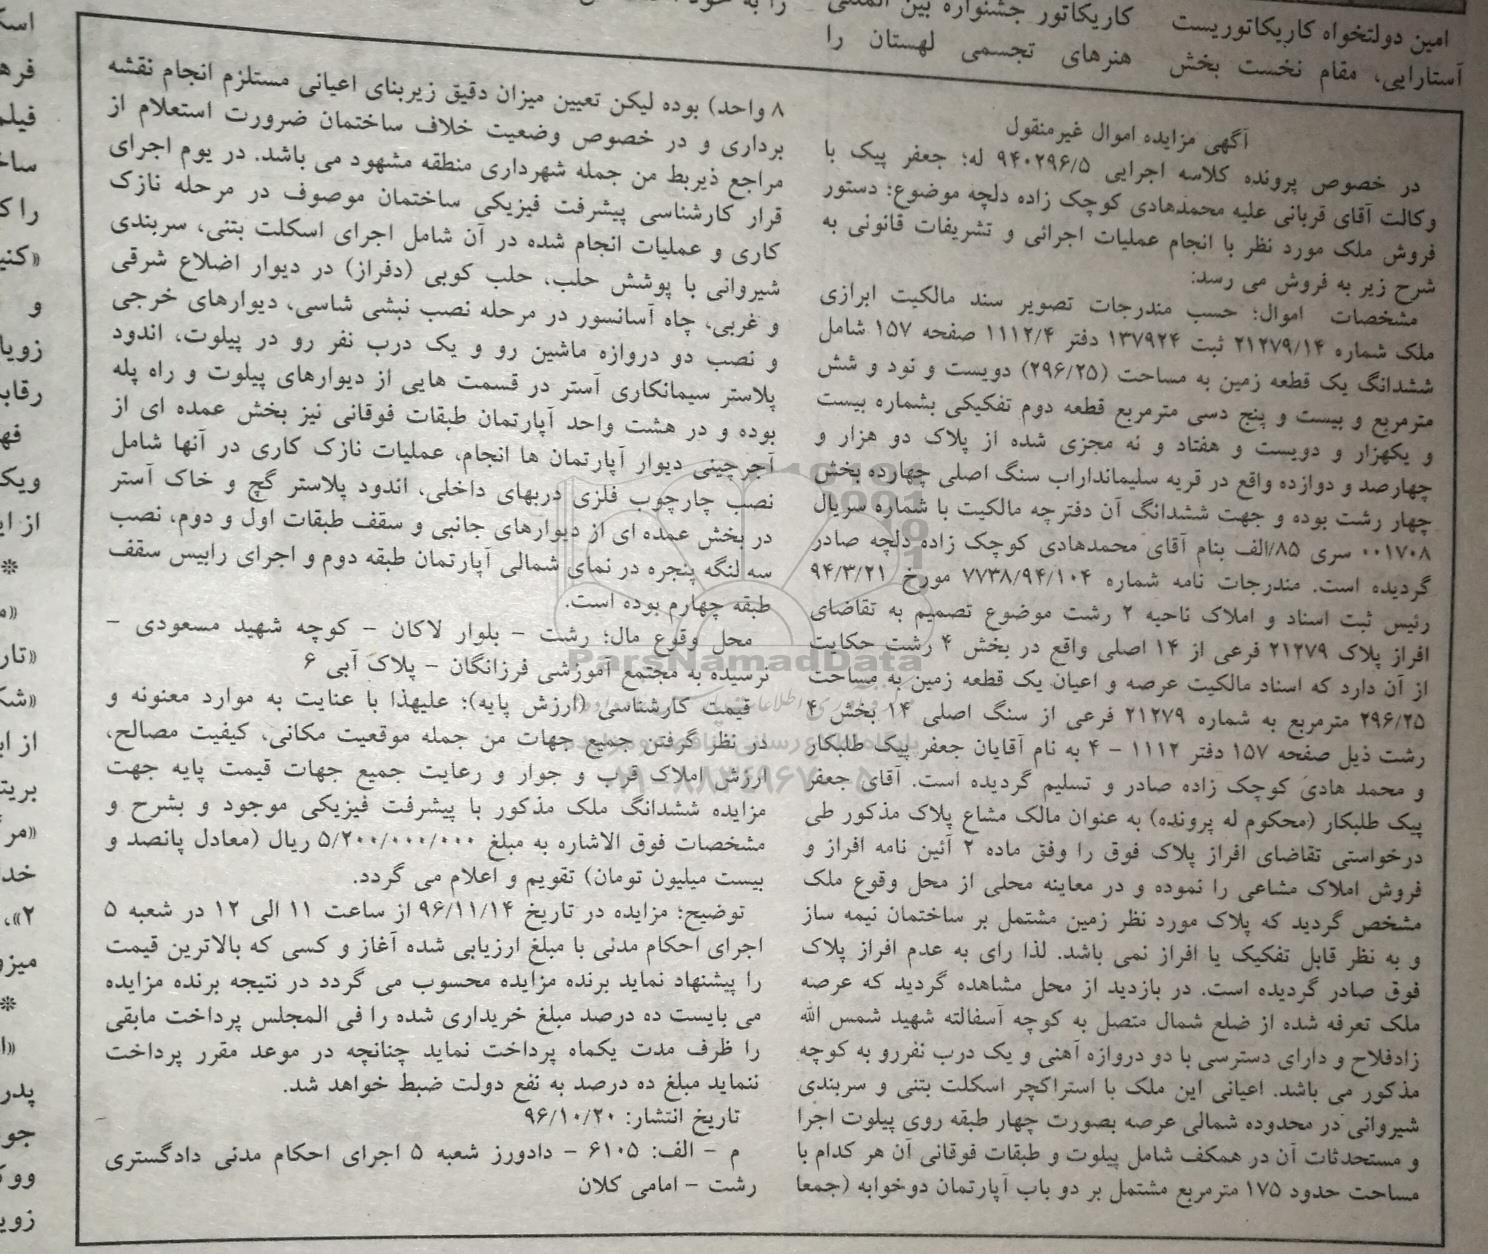 امین دولتخواه کاریکاتوریست
آستارایی، مقام نخست بخش
کاریکاتور جشنواره بین المللی
هنرهای تجسمی لهستان را
را به خود
آگهی مزایده اموال غیرمنقول
در خصوص پرونده کلاسه اجرایی ۹۴۰۲۹۶/۵ له؛ جعفر پیک با
وکالت آقای قربانی علیه محمدهادی کوچک زاده دلچه موضوع؛ دستور
فروش ملک مورد نظر با انجام عملیات اجرائی و تشریفات قانونی به
شرح زیر به فروش می رسد:
مشخصات اموال؛ حسب مندرجات تصویر سند مالکیت ابرازی
ملک شماره ۲۱۲۷۹/۱۴ ثبت ۱۳۷۹۲۴ دفتر ۱۱۱۲/۴ صفحه ۱۵۷ شامل
ششدانگ یک قطعه زمین به مساحت (۲۹۶/۲۵) دویست و نود و شش
مترمربع و بیست و پنج دسی مترمربع قطعه دوم تفکیکی بشماره بیست
و یکهزار و دویست و هفتاد و نه مجزی شده از پلاک دو هزار و
چهارصد و دوازده واقع در قریه سلیمانداراب سنگ اصلی چهارده بخش
چهار رشت بوده و جهت ششدانگ آن دفترچه مالکیت با شماره سریال
۰۰۱۷۰۸ سری ۸۵/الف بنام آقای محمدهادی کوچک زاده دلچه صادر
گردیده است. مندرجات نامه شماره ۷۷۳۸/۹۴/۱۰۴ مورخ ۹۴/۳/۲۱
رئیس ثبت اسناد و املاک ناحیه ۲ رشت موضوع تصمیم به تقاضای
افراز پلاک ۲۱۲۷۹ فرعی از ۱۴ اصلی واقع در بخش ۴ رشت حکایت
از آن دارد که اسناد مالکیت عرصه و اعیان یک قطعه زمین به مساحت
۲۹۶/۲۵ مترمربع به شماره ۲۱۲۷۹ فرعی از سنگ اصلی ۱۴ بخش ۴
رشت ذیل صفحه ۱۵۷ دفتر ۱۱۱۲ - ۴ به نام آقایان جعفر پیک طلبکار
و محمد هادی کوچک زاده صادر و تسلیم گردیده است. آقای جعفر
پیک طلبکار (محکوم له پرونده) به عنوان مالک مشاع پلاک مذکور طی
درخواستی تقاضای افراز پلاک فوق را وفق ماده ۲ آئین نامه افراز و
فروش املاک مشاعی را نموده و در معاینه محلی از محل وقوع ملک
مشخص گردید که پلاک مورد نظر زمین مشتمل بر ساختمان نیمه ساز
و به نظر قابل تفکیک یا افراز نمی باشد. لذا رای به عدم افراز پلاک
فوق صادر گردیده است. در بازدید از محل مشاهده گردید که عرصه
ملک تعرفه شده از ضلع شمال متصل به کوچه آسفالته شهید شمس الله
زادفلاح و دارای دسترسی با دو دروازه آهنی و یک درب نفررو به کوچه
مذکور می باشد. اعیانی این ملک با استراکچر اسکلت بتنی و سربندی
شیروانی در محدوده شمالی عرصه بصورت چهار طبقه روی پیلوت اجرا
و مستحدثات آن در همکف شامل پیلوت و طبقات فوقانی آن هر کدام با
مساحت حدود ۱۷۵ مترمربع مشتمل بر دو باب آپارتمان دوخوابه (جمعا
۸ واحد) بوده لیکن تعیین میزان دقیق زیربنای اعیانی مستلزم انجام نقشه
برداری و در خصوص وضعیت خلاف ساختمان ضرورت استعلام از
مراجع ذیربط من جمله شهرداری منطقه مشهود می باشد. در یوم اجرای
قرار کارشناسی پیشرفت فیزیکی ساختمان موصوف در مرحله نازک
کاری و عملیات انجام شده در آن شامل اجرای اسکلت بتنی، سربندی
شیروانی با پوشش حلب، حلب کوبی (دفراز) در دیوار اضلاع شرقی
و غربی، چاه آسانسور در مرحله نصب نبشی شاسی، دیوارهای خرجی
و نصب دو دروازه ماشین رو و یک درب نفر رو در پیلوت، اندود
پلاستر سیمانکاری آستر در قسمت هایی از دیوارهای پیلوت و راه پله
بوده و در هشت واحد آپارتمان طبقات فوقانی نیز بخش عمده ای از
آجرچینی دیوار آپارتمان ها انجام، عملیات نازک کاری در آنها شامل
نصب چارچوب فلزی دربهای داخلی، اندود پلاستر گچ و خاک آستر
در بخش عمده ای از دیوارهای جانبی و سقف طبقات اول و دوم، نصب
سه لنگه پنجره در نمای شمالی آپارتمان طبقه دوم و اجرای رابیس سقف
طبقه چهارم بوده است.
محل وقوع مال؛ رشت - بلوار لاکان - کوچه شهید مسعودی -
نرسیده به مجتمع آموزشی فرزانگان - پلاک آبی ۶
قیمت کارشناسی (ارزش پایه)؛ علیهذا با عنایت به موارد معنونه و
در نظر گرفتن جمیع جهات من جمله موقعیت مکانی، کیفیت مصالح،
ارزش املاک قرب و جوار و رعایت جمیع جهات قیمت پایه جهت
مزایده ششدانگ ملک مذکور با پیشرفت فیزیکی موجود و بشرح و
مشخصات فوق الاشاره به مبلغ ۵/۲۰۰/۰۰۰/۰۰۰ ریال (معادل پانصد و
بیست میلیون تومان) تقویم و اعلام می گردد.
توضیح؛ مزایده در تاریخ ۹۶/۱۱/۱۴ از ساعت ۱۱ الی ۱۲ در شعبه ۵
اجرای احکام مدنی با مبلغ ارزیابی شده آغاز و کسی که بالاترین قیمت
را پیشنهاد نماید برنده مزایده محسوب می گردد در نتیجه برنده مزایده
می بایست ده درصد مبلغ خریداری شده را فی المجلس پرداخت مابقی
را ظرف مدت یکماه پرداخت نماید چنانچه در موعد مقرر پرداخت
ننماید مبلغ ده درصد به نفع دولت ضبط خواهد شد.
تاریخ انتشار: ۹۶/۱۰/۲۰
م - الف: ۶۱۰۵ - دادورز شعبه ۵ اجرای احکام مدنی دادگستری
رشت - امامی کلان
ParsNamadData